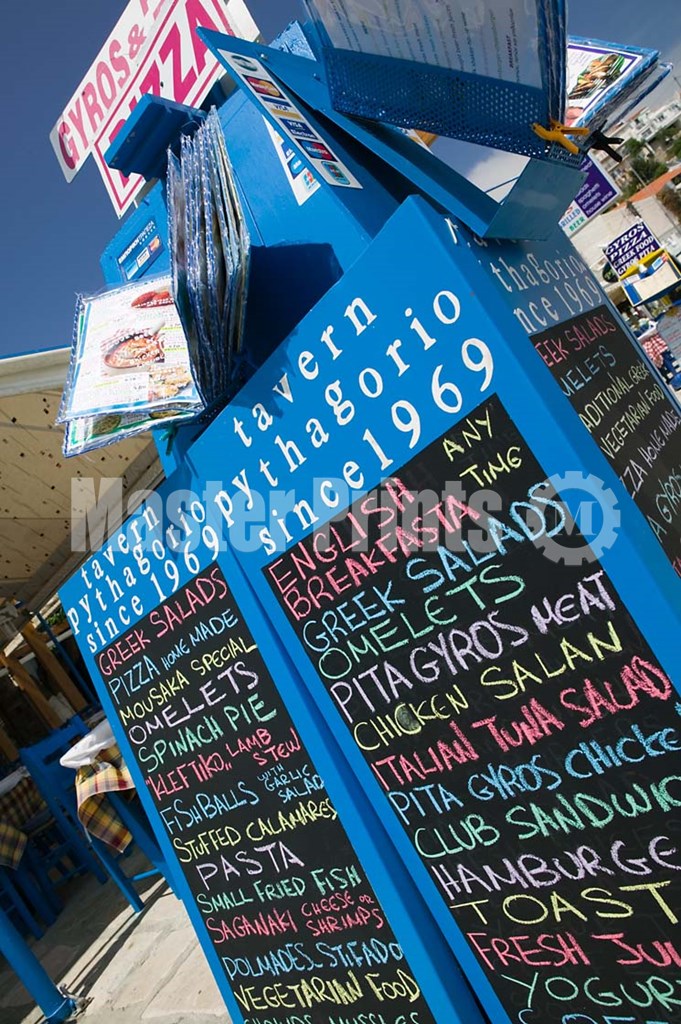 GYROS &
PIZZA
BREAKFAST
VISA
GYROS
PIZZA
GREEK FOOD
GYROS PITA
tavern
pythagorio
since 1969
GREEK SALADS
PIZZA HOME MADE
MOUSAKA SPECIAL
OMELETS
SPINACH PIE
"KLEFTIKO" LAMB
STEW
FISHBALLS WITH GARLIC
SALAD
STUFFED CALAMARES
PASTA
SMALL FRIED FISH
SAGANAKI CHEESE OR
SHRIMPS
DOLMADES ST.FADO
VEGETARIAN FOOD
MUSSLES
tavern
pythagorio
since 1969
ANY
TIME
ENGLISH
BREAKFASTA
GREEK SALADS
OMELETS
PITA GYROS MEAT
CHICKEN SALAN
ITALIAN TUNA SALAD
PITA GYROS CHICKE
CLUB SANDWIC
HAMBURGE
TOAST
FRESH JUI
YOGURT
pythagorio
since 1969
EEK SALADS
OMELETS
ADITIONAL GREEK
VEGETARIAN FOOD
PIZZA HOME MADE
A GYROS
Master Prints
M